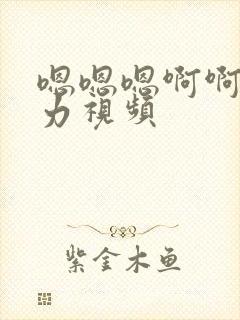 嗯嗯嗯啊啊
力視頻
紫金木鱼